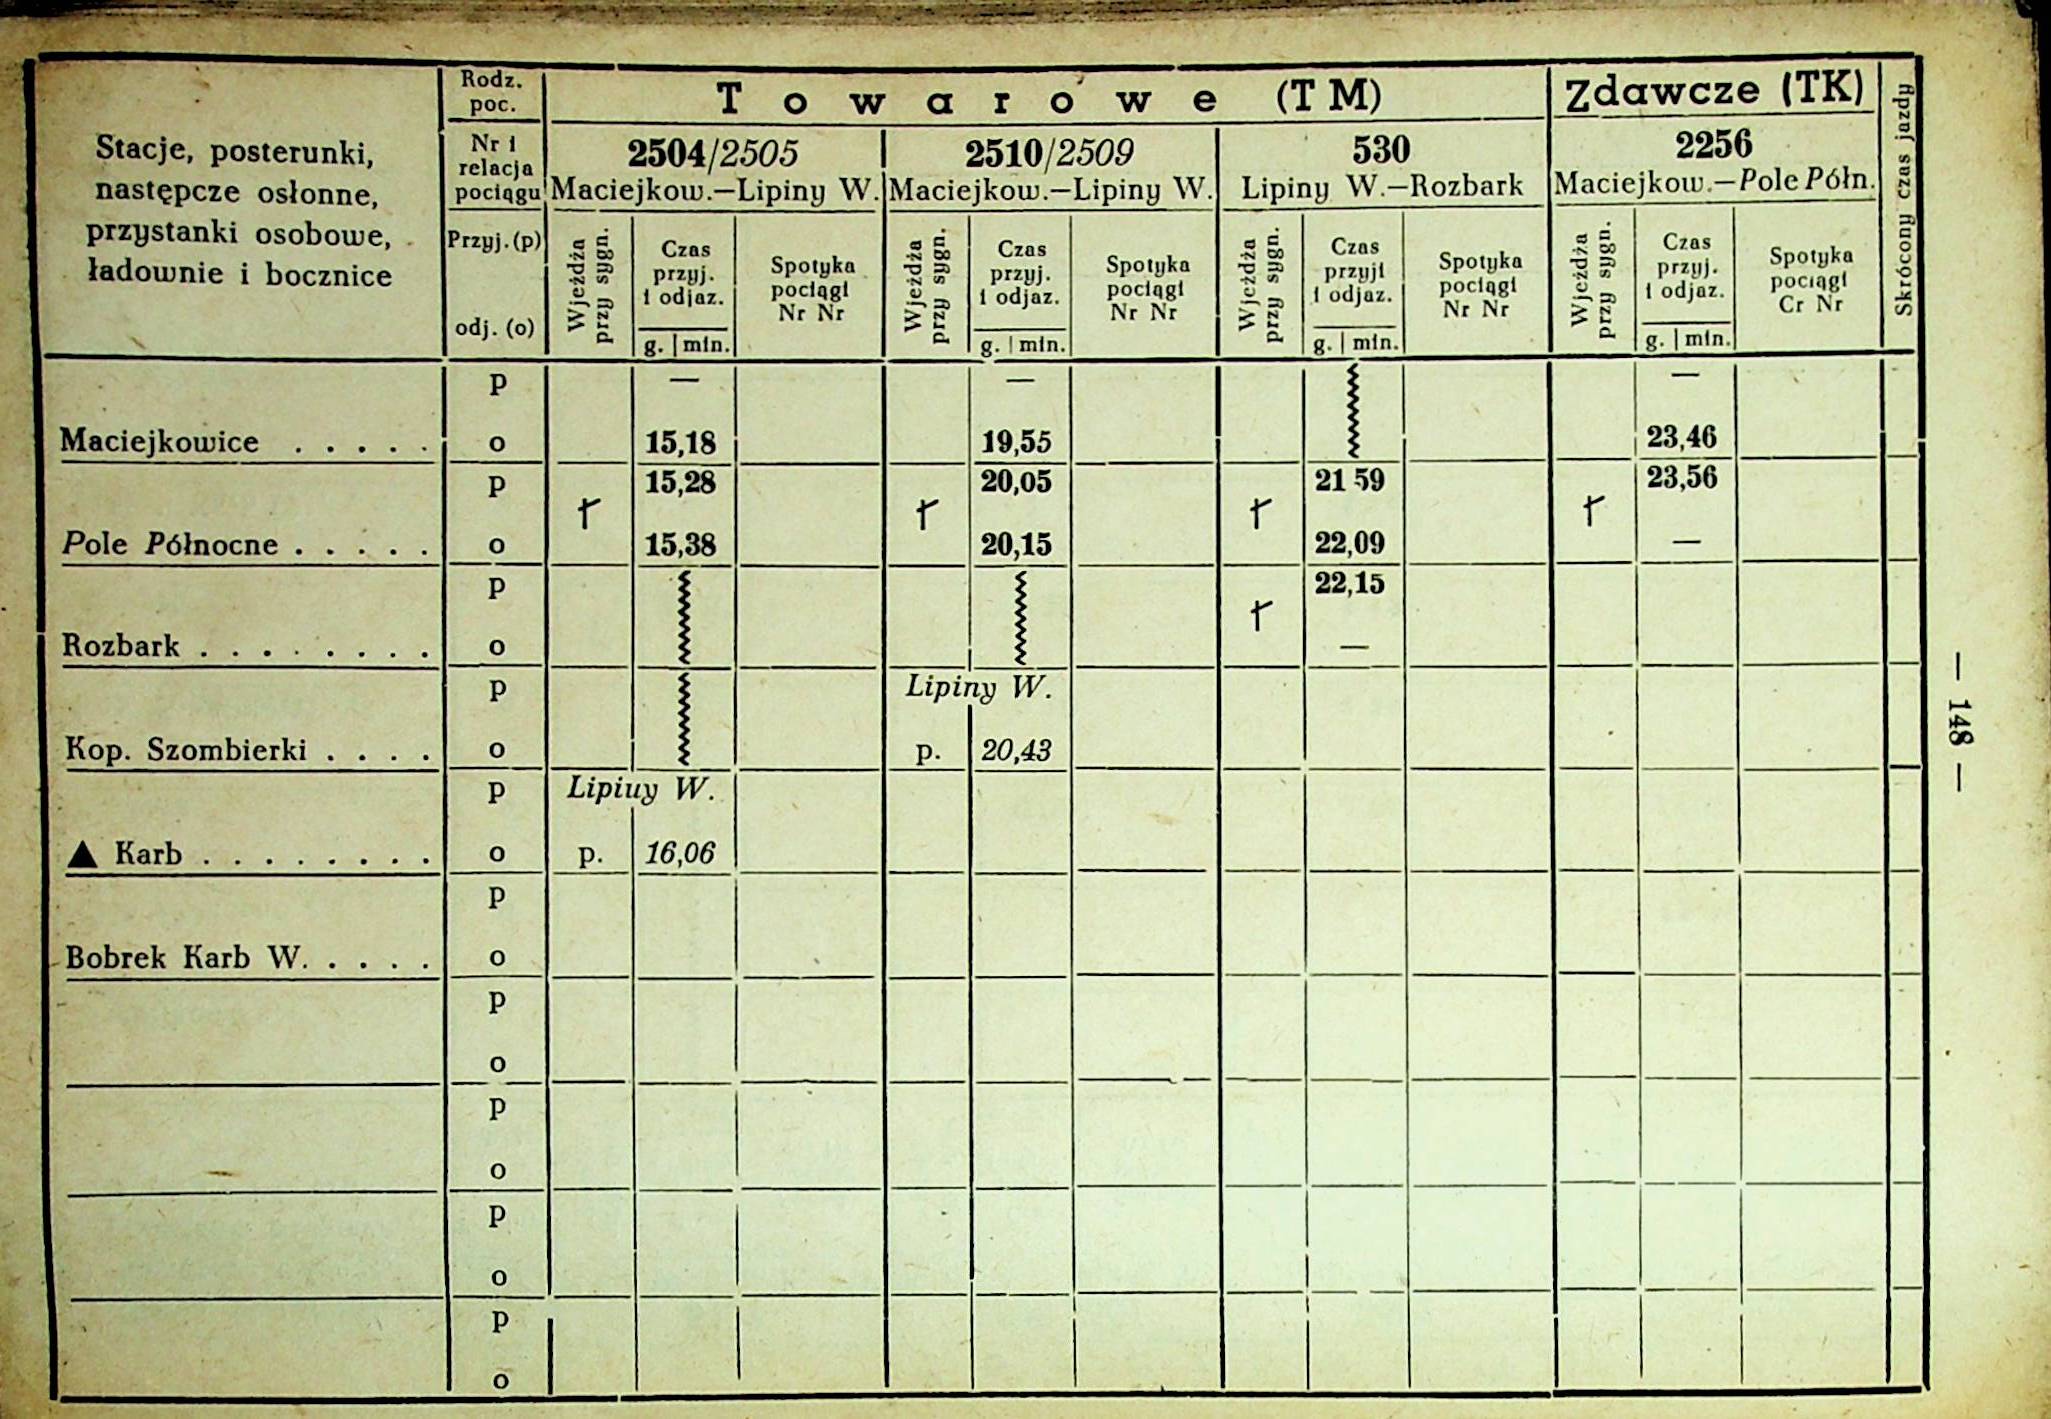 Stacje, posterunki,
następcze osłonne,
przystanki osobowe,
ładownie i bocznice
Rodz.
poc.
Nr i
relacja
pociągu
Przyj. (p)
odj. (o)
Towarowe (TM)
Zdawcze (TK)
Skrócony czas jazdy
2504/2505
Maciejkow.—Lipiny W.
2510/2509
Maciejkow.—Lipiny W.
530
Lipiny W.—Rozbark
2256
Maciejkow.—Pole Półn.
Wjeżdża
przy sygn.
Czas
przyj.
i odjaz.
g. | min.
Spotyka
pociągi
Nr Nr
Wjeżdża
przy sygn.
Czas
przyj.
i odjaz.
g. | min.
Spotyka
pociągi
Nr Nr
Wjeżdża
przy sygn.
Czas
przyji
i odjaz.
g. | min.
Spotyka
pociągi
Nr Nr
Wjeżdża
przy sygn.
Czas
przyj.
i odjaz.
g. | min.
Spotyka
pociągi
Cr Nr
p — — —
Maciejkowice . . . . . o 15,18 19,55 23,46
p 15,28 20,05 21 59 23,56
† † † †
Pole Północne . . . . . o 15,38 20,15 22,09 —
p 22,15
†
Rozbark . . . . . . . . o —
p Lipiny W.
Kop. Szombierki . . . . o p. 20,43
p Lipiuy W.
▲ Karb . . . . . . . . o p. 16,06
p
Bobrek Karb W. . . . . o
p
o
p
o
p
o
p
o
— 148 —